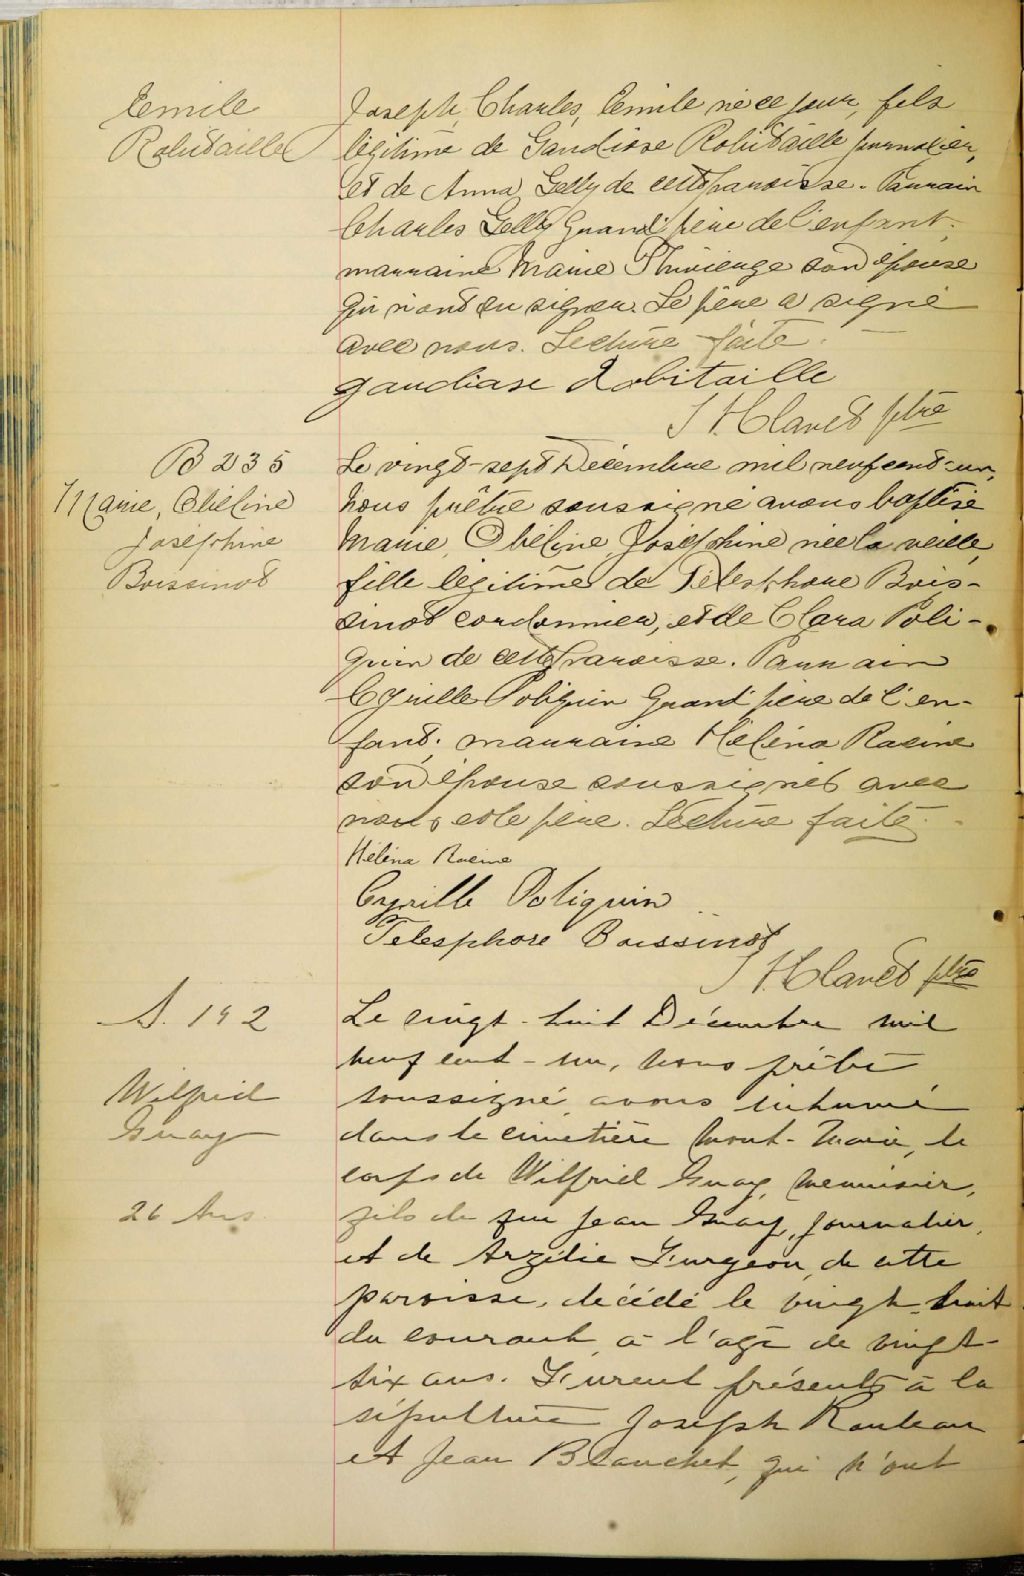 Emile
Robitaille
Joseph, Charles, Emile né ce jour, fils
légitime de Gaudiose Robitaille journalier,
et de Anna Gelly de cette paroisse. Parrain
Charles Gelly Grand'père de l'enfant;
marraine Marie Thivierge son épouse
qui n'ont su signer. Le père a signé
avec nous. Lecture faite.
gaudiase Robitaille
Clavet ptre
B 235
Marie, Obéline
Joséphine
Boissinot
Le vingt-sept Décembre mil neuf cent-un,
nous prêtre soussigné avons baptisé
Marie, Obéline, Joséphine née la veille,
fille légitime de Télesphore Bois-
sinot cordonnier, et de Clara Poli-
quin de cette paroisse. Parrain
Cyrille Poliquin Grand'père de l'en-
fant; marraine Héléna Racine
son épouse soussignés avec
nous et le père. Lecture faite.
Héléna Racine
Cyrille Poliquin
Telesphore Boissinot
Clavet ptre
S. 142
Wilfrid
Guay
26 Ans
Le vingt-huit Décembre mil
neuf cent-un, nous prêtre
soussigné, avons inhumé
dans le cimetière Mont-Marie, le
corps de Wilfrid Guay, menuisier,
fils de feu Jean Guay, journalier,
et de Arzélie Turgeon, de cette
paroisse, décédé le vingt-huit
du courant, à l'age de vingt-
six ans. Furent présents à la
sépulture Joseph Rouleau
et Jean Blanchet, qui n'ont